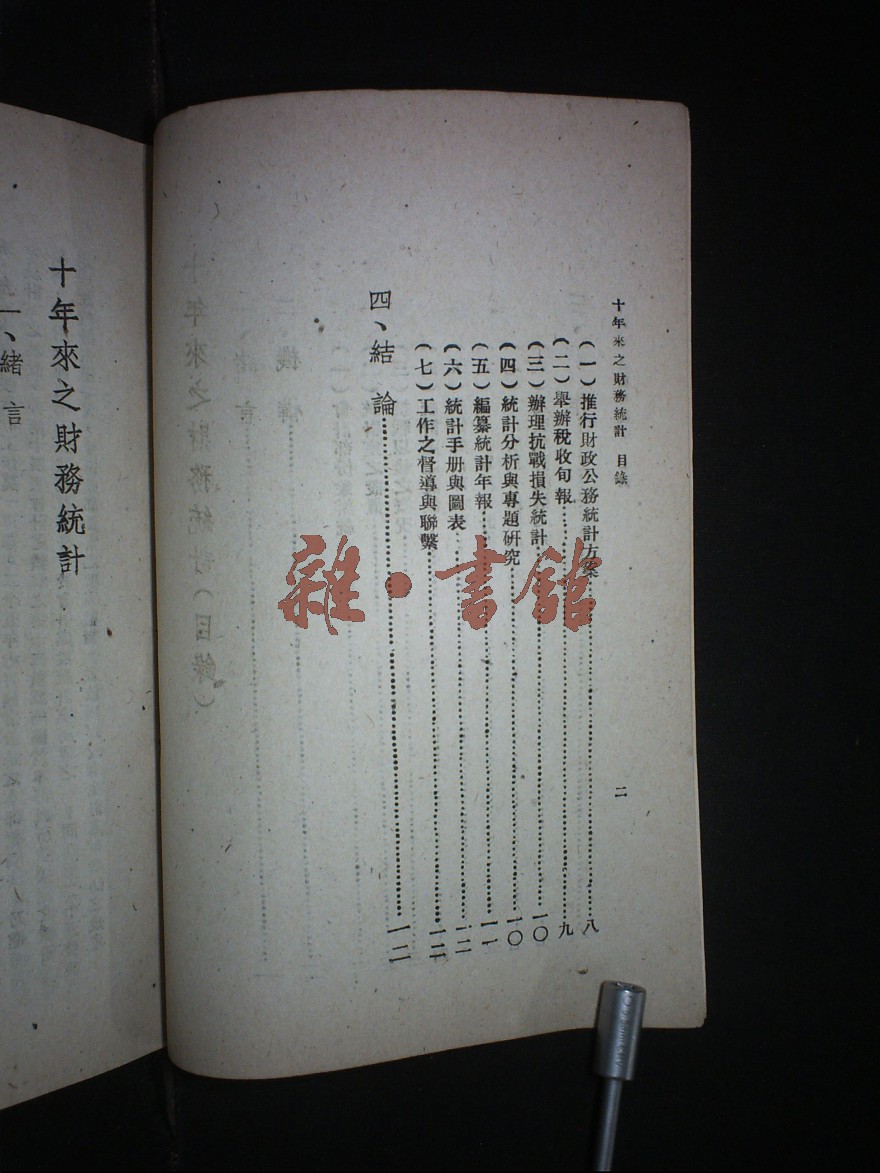 十年來之財務統計 目錄
二
(一)推行財政公務統計方案……八
(二)舉辦稅收旬報……九
(三)辦理抗戰損失統計……一〇
(四)統計分析與專題研究……一〇
(五)編纂統計年報……一一
(六)統計手册與圖表……一二
(七)工作之督導與聯繫……一二
四、結論……一二
十年來之財務統計
一、緒言
雜·書館